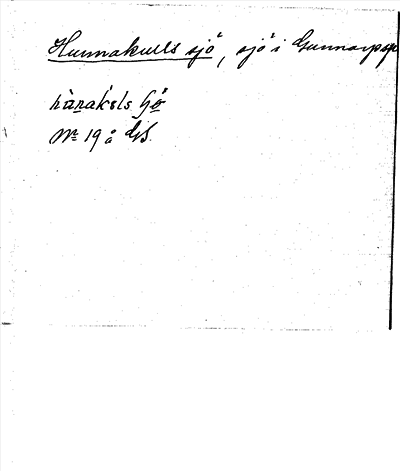 Hunnakulls sjö, sjö i Gunnarpsp
hànak'els
No 19 å GS.